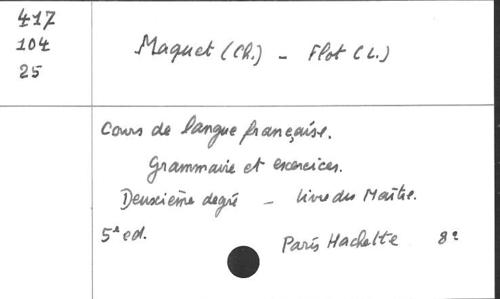 417
104
25
Maquet (Ch.) - Flot (L.)
Cours de langue française.
Grammaire et exercices.
Deuxième degré - Livre du Maître.
5e ed. Paris Hachette 8°